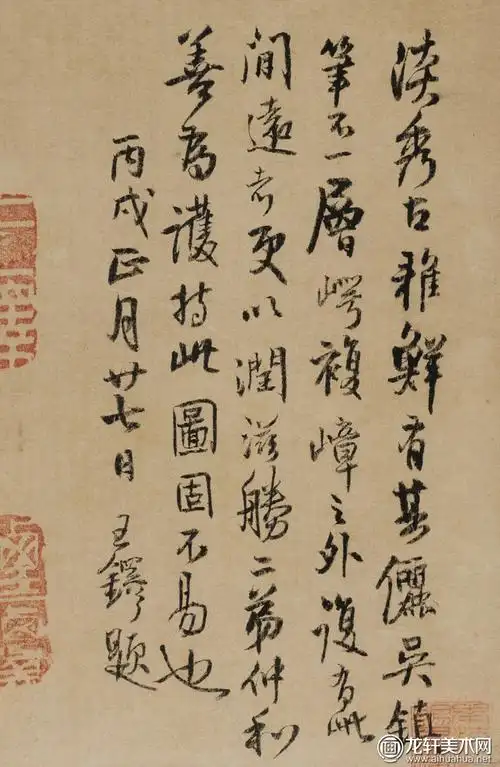 淡秀古雅鮮有其儷吴鎮
筆不一層崿複嶂之外復有此
簡遠者更以潤滋勝二弟仲和
善為護持此圖固不易也
丙戌正月廿七日 王鐸題
龙轩美术网
www.aihuahua.net